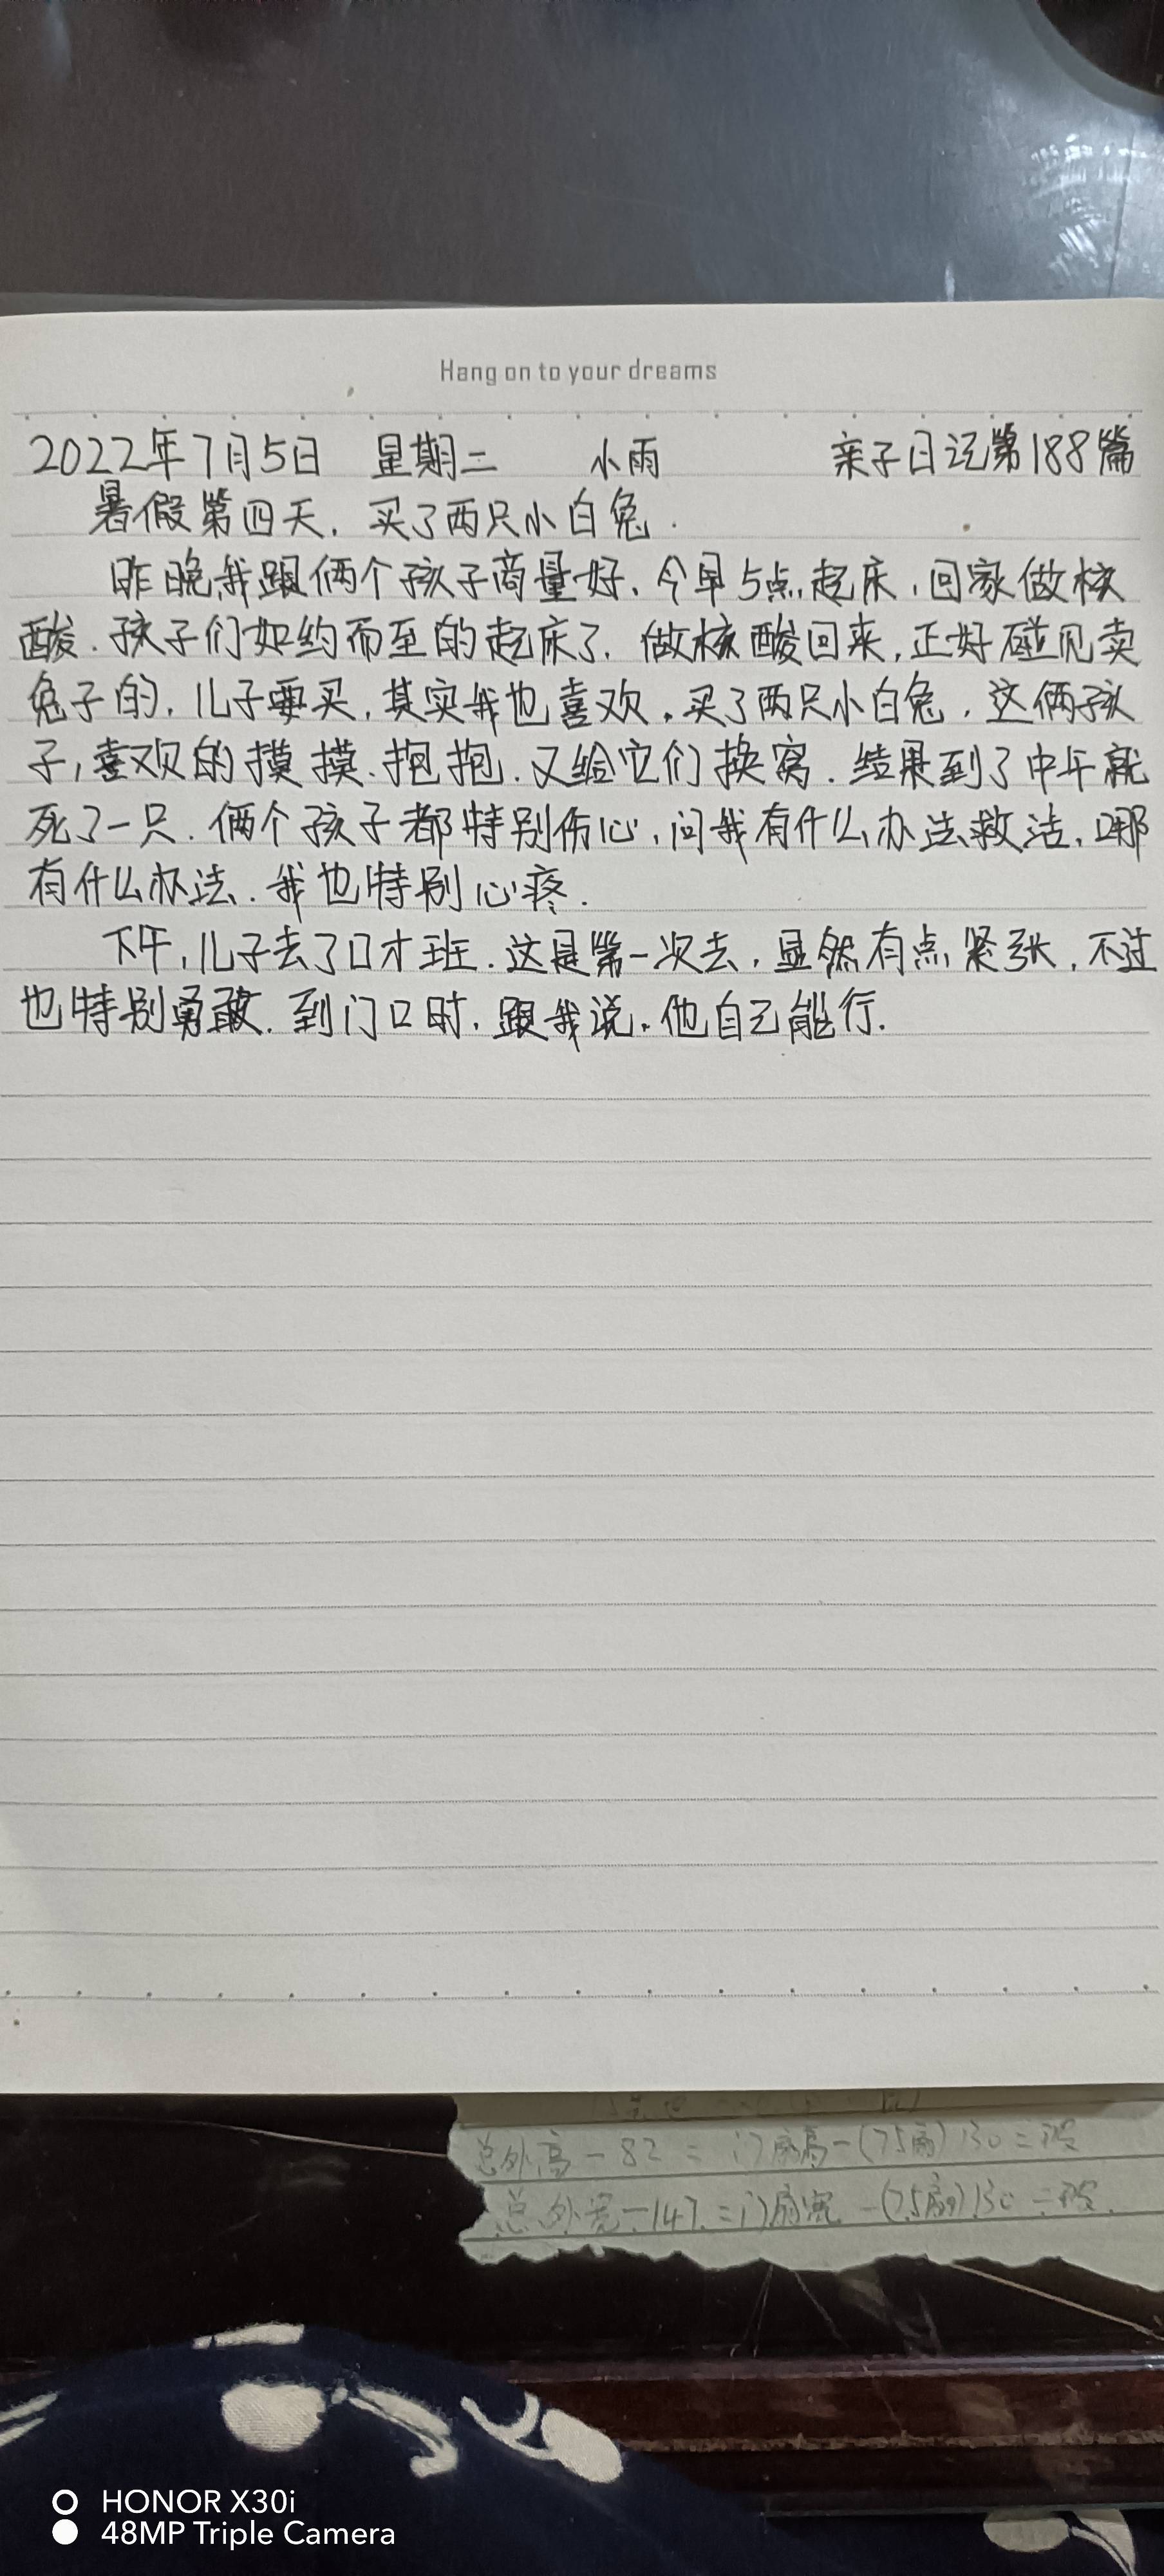 Hang on to your dreams
2022年7月5日 星期二 小雨 亲子日记第188篇
暑假第四天，买了两只小白兔.
昨晚我跟俩个孩子商量好，今早5点起床，回家做核
酸.孩子们如约而至的起床了，做核酸回来，正好碰见卖
兔子的，儿子要买，其实我也喜欢，买了两只小白兔，这俩孩
子，喜欢的摸摸、抱抱.又给它们换窝.结果到了中午就
死了一只.俩个孩子都特别伤心，问我有什么办法救活，哪
有什么办法.我也特别心疼.
下午，儿子去了口才班.这是第一次去，显然有点紧张，不过
也特别勇敢.到门口时，跟我说，他自己能行.
总外高-82=门扇高-(75扇)130=玻
总外宽-147=门扇宽-(75扇)130=玻.
HONOR X30i
48MP Triple Camera